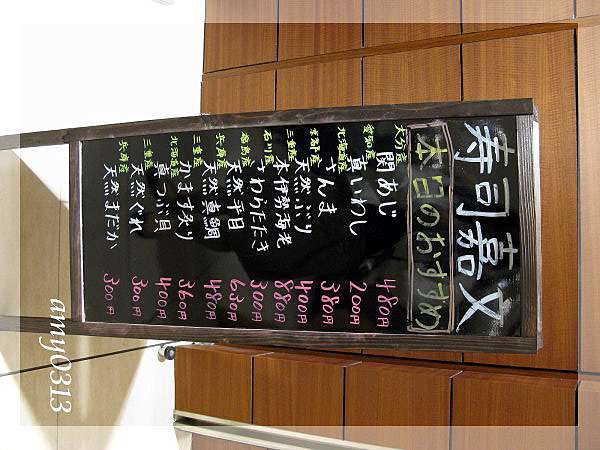 寿司嘉文
本日のおすすめ
大分産 関あじ 480円
愛知産 真いわし 200円
北海道産 さんま 380円
京都産 天然ぶり 400円
三重産 本伊勢海老 880円
石川産 さわらたたき 300円
福島産 天然平目 630円
兵庫産 天然真鯛 480円
三重産 かます炙り 360円
北海道産 真つぶ貝 400円
三重産 天然ぐれ 300円
兵庫産 天然まだか 300円
amy0313